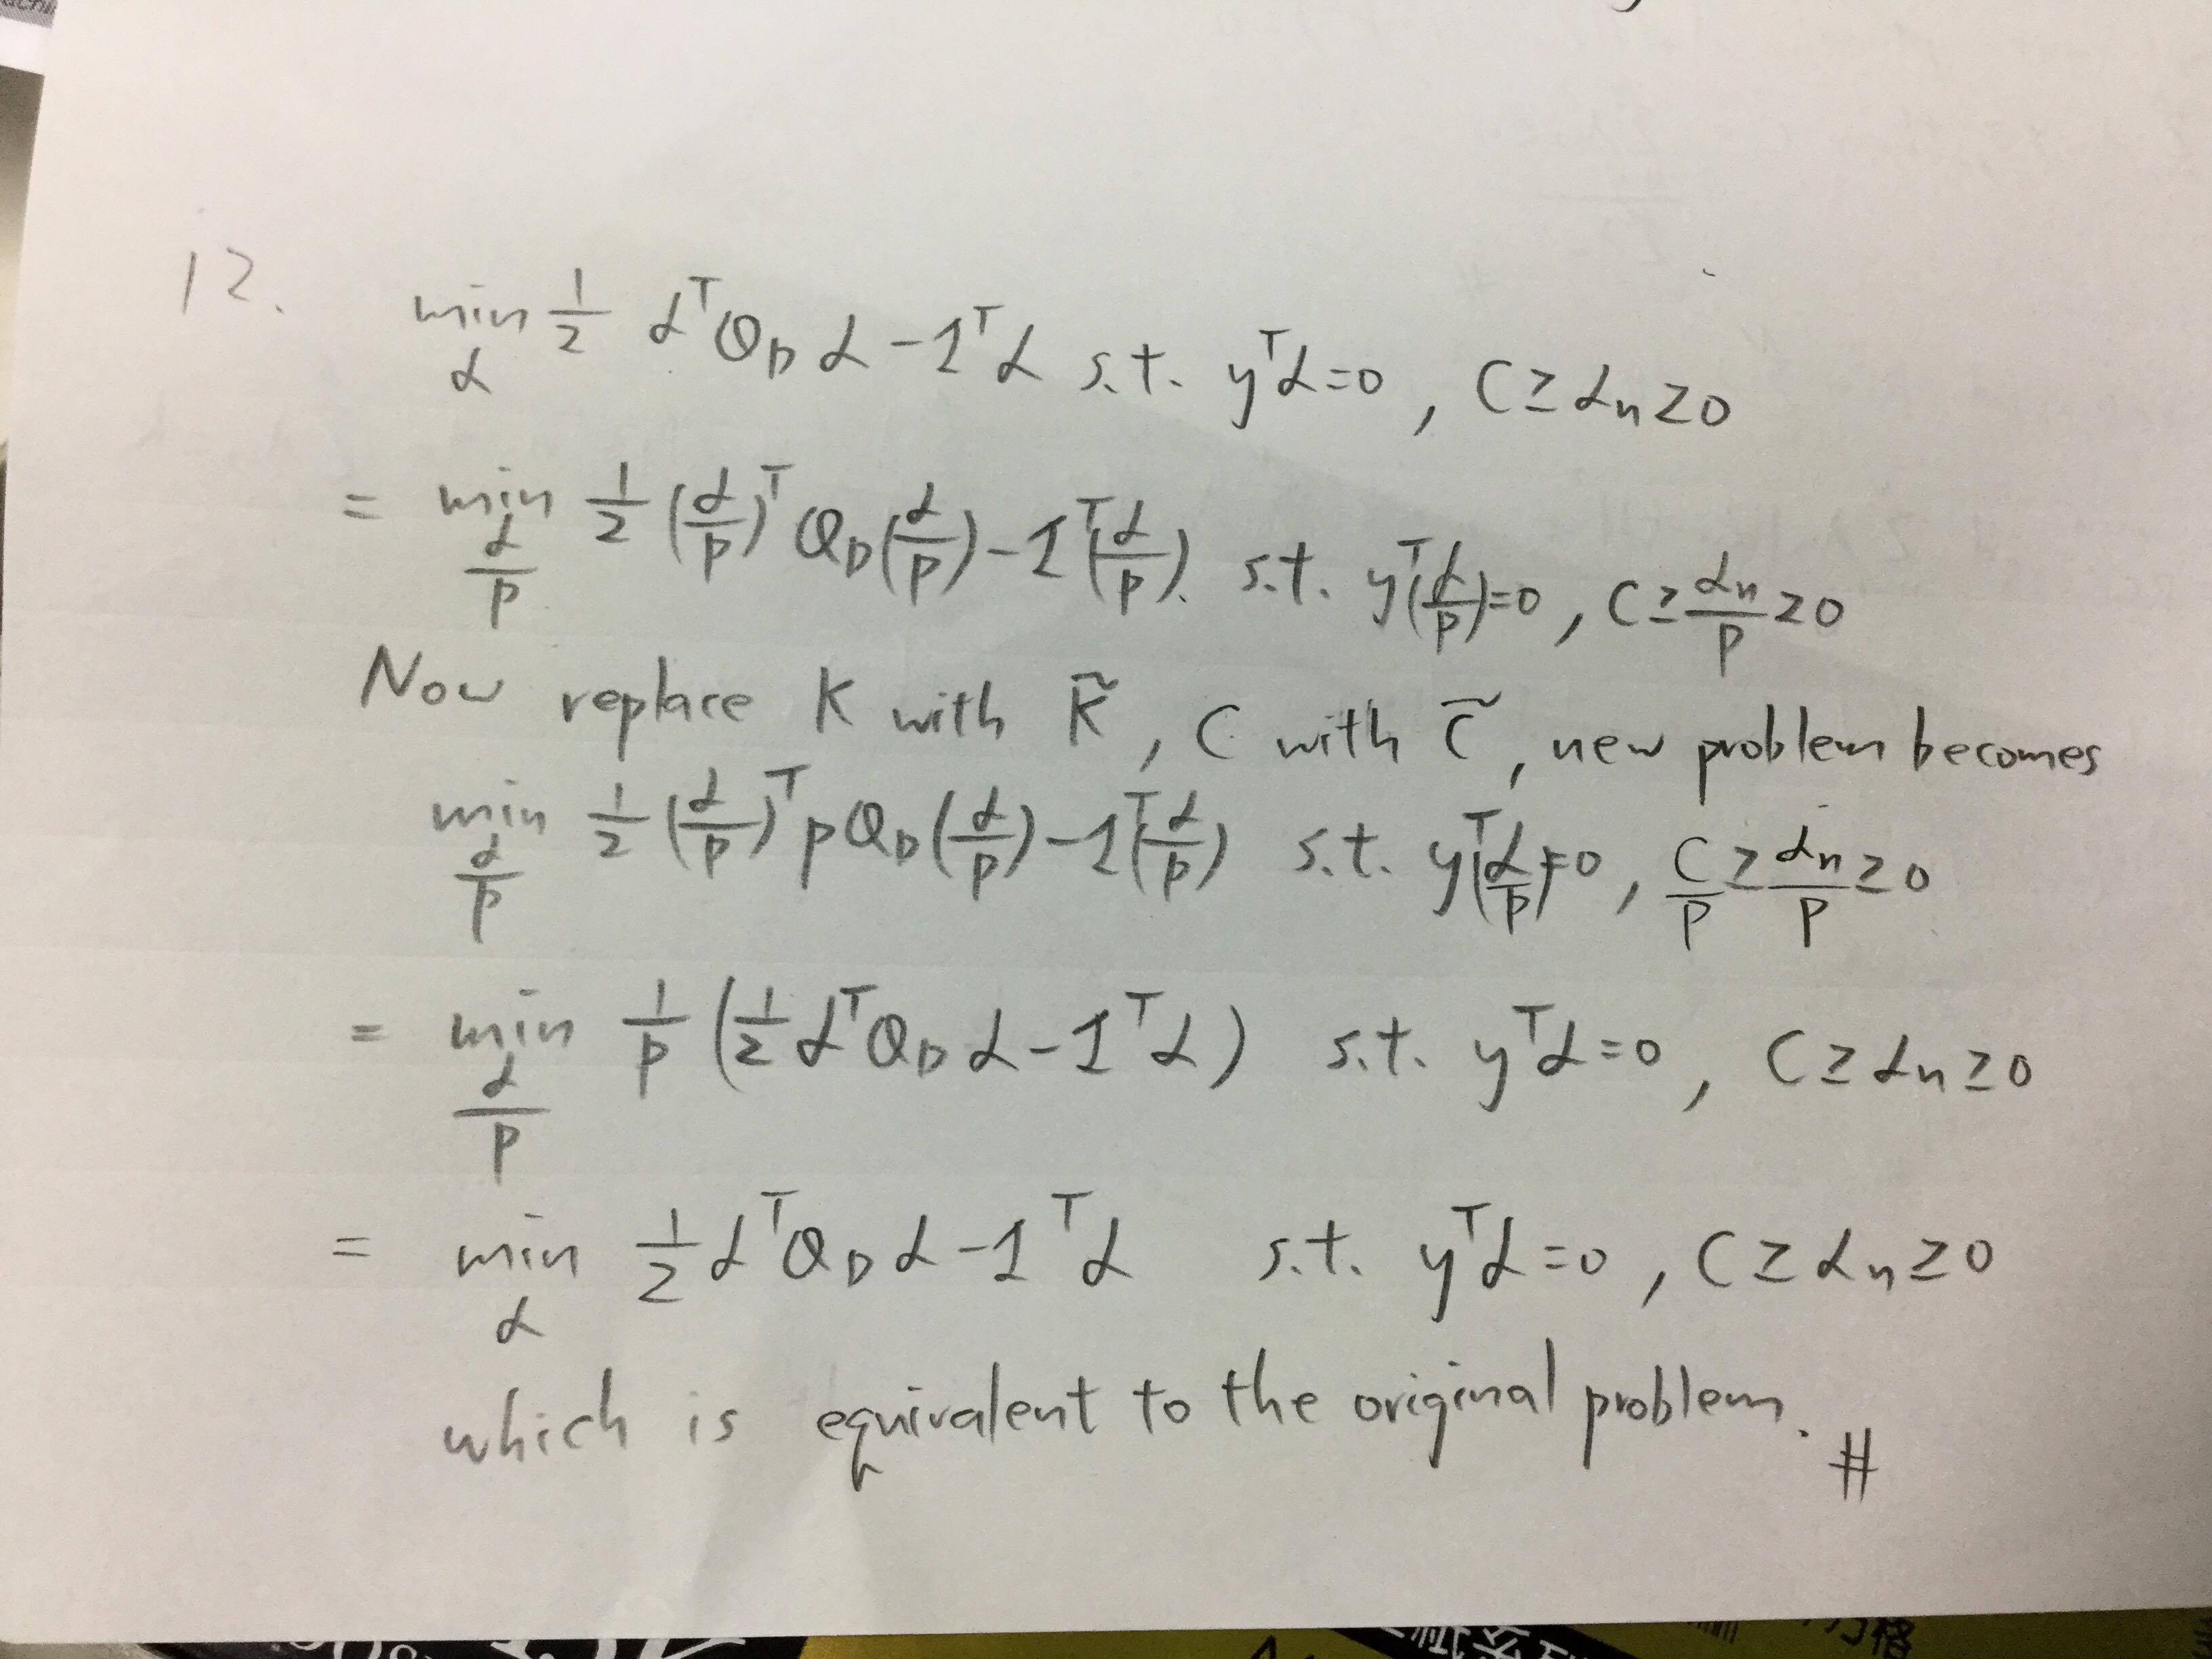 12. min_α 1/2 α^T Q_D α - 1^T α s.t. y^T α = 0, C ≥ α_n ≥ 0
= min_{α/p} 1/2 (α/p)^T Q_D (α/p) - 1^T (α/p). s.t. y^T (α/p) = 0, C ≥ α_n/p ≥ 0
Now replace K with K̃, C with C̃, new problem becomes
min_{α/p} 1/2 (α/p)^T p Q_D (α/p) - 1^T (α/p) s.t. y^T (α/p) = 0, C/p ≥ α_n/p ≥ 0
= min_{α/p} 1/p (1/2 α^T Q_D α - 1^T α) s.t. y^T α = 0, C ≥ α_n ≥ 0
= min_α 1/2 α^T Q_D α - 1^T α s.t. y^T α = 0, C ≥ α_n ≥ 0
which is equivalent to the original problem. #